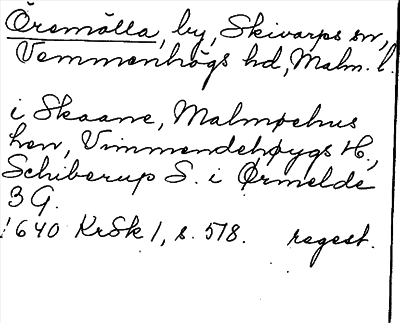 Öremölla, by, Skivarps sn,
Vemmenhögs hd, Malm. l.
i Skaane, Malmøehus
hen, Vimmendehøygs H.,
Schiberup S. i Ørmelde
3 G.
1640 KrSk 1, s. 578. regest.